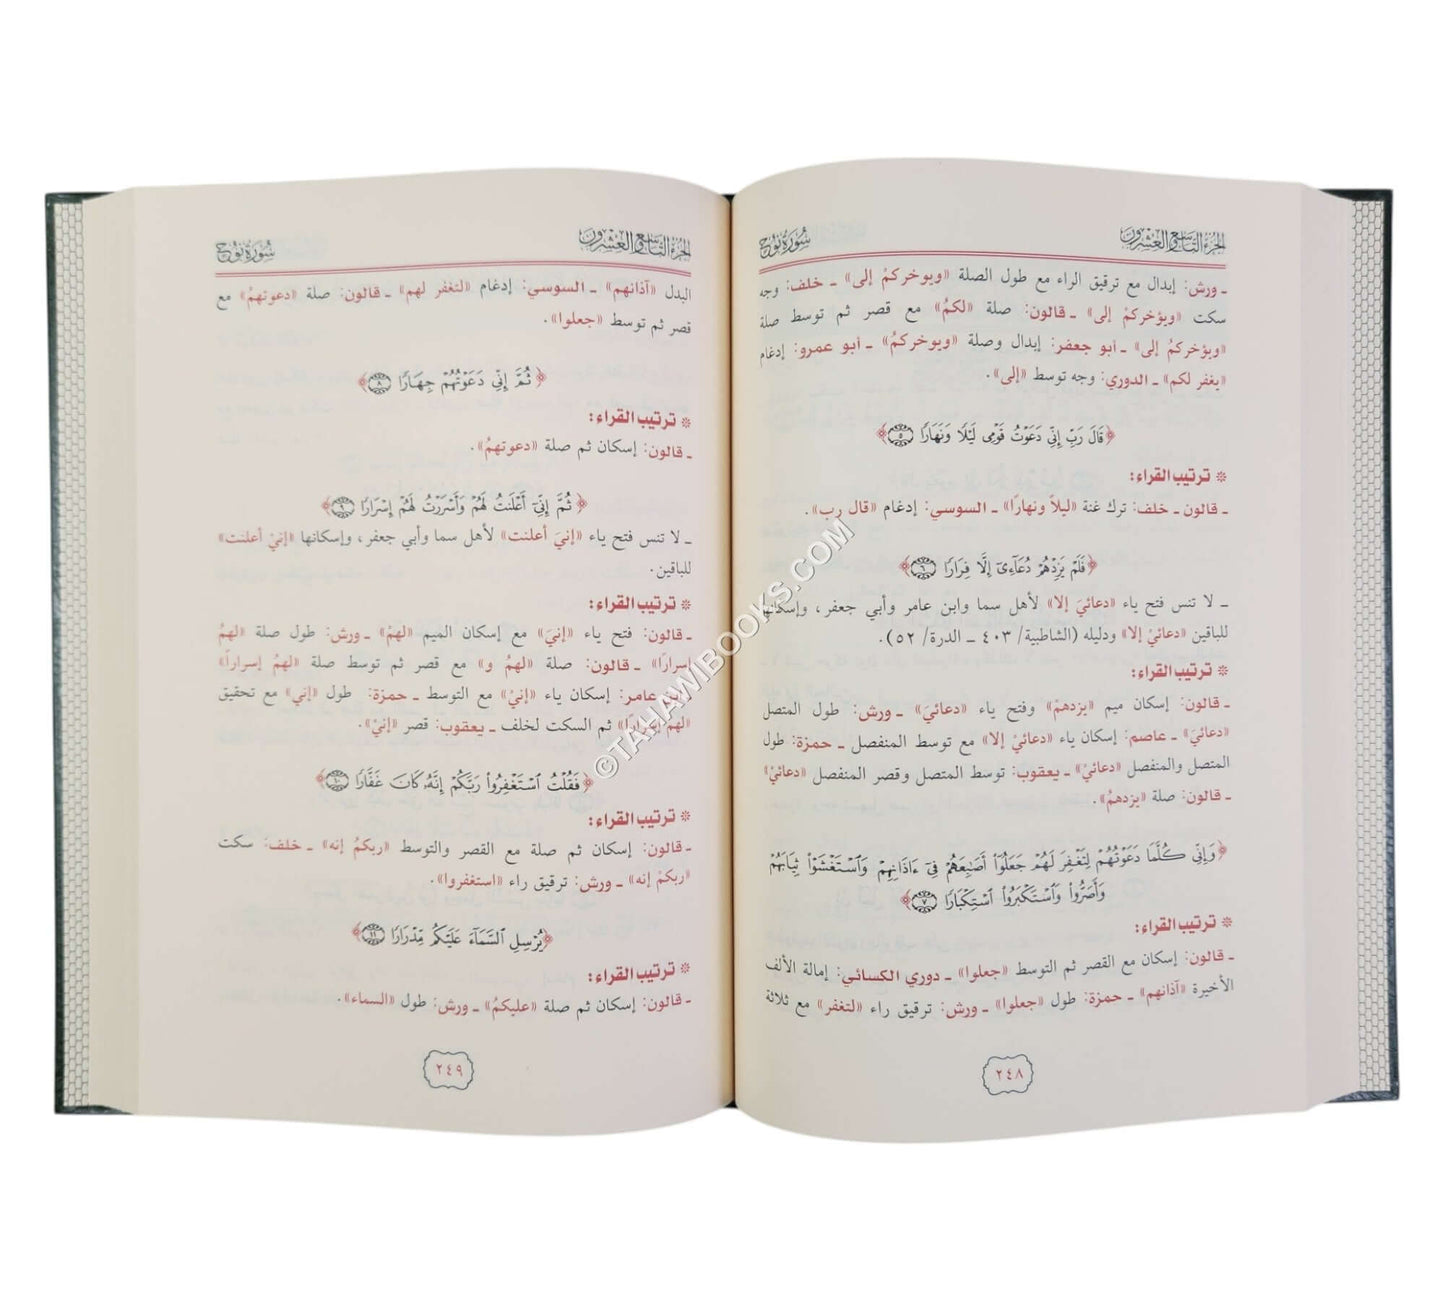 الجزء التاسع والعشرون سورة نوح
ـ ورش: إبدال مع ترقيق الراء مع طول الصلة «ويوخركمُ إلى» ـ خلف: وجه
سكت «ويؤخركمْ إلى» ـ قالون: صلة «لكمُ» مع قصر ثم توسط صلة
«ويؤخركمُ إلى» ـ أبو جعفر: إبدال وصلة «ويوخركمُ» ـ أبو عمرو: إدغام
«يغفر لكم» ـ الدوري: وجه توسط «إلى».
﴿قَالَ رَبِّ إِنِّي دَعَوْتُ قَوْمِي لَيْلًا وَنَهَارًا ٥﴾
* ترتيب القراء:
ـ قالون ـ خلف: ترك غنة «ليلاً ونهارًا» ـ السوسي: إدغام «قال رب».
﴿فَلَمْ يَزِدْهُمْ دُعَآءِىٓ إِلَّا فِرَارًا ٦﴾
ـ لا تنس فتح ياء «دعائيَ إلا» لأهل سما وابن عامر وأبي جعفر، وإسكانها
للباقين «دعائيْ إلا» ودليله (الشاطبية/ ٤٠٣ ـ الدرة/ ٥٢).
* ترتيب القراء:
ـ قالون: إسكان ميم «يزدهمْ» وفتح ياء «دعائيَ» ـ ورش: طول المتصل
«دعائيَ» ـ عاصم: إسكان ياء «دعائيْ إلا» مع توسط المنفصل ـ حمزة: طول
المتصل والمنفصل «دعائيْ» ـ يعقوب: توسط المتصل وقصر المنفصل «دعائيْ»
ـ قالون: صلة «يزدهمُ».
﴿وَإِنِّي كُلَّمَا دَعَوْتُهُمْ لِتَغْفِرَ لَهُمْ جَعَلُوٓا۟ أَصَٰبِعَهُمْ فِىٓ ءَاذَانِهِمْ وَٱسْتَغْشَوْا۟ ثِيَابَهُمْ
وَأَصَرُّوا۟ وَٱسْتَكْبَرُوا۟ ٱسْتِكْبَارًا ٧﴾
* ترتيب القراء:
ـ قالون: إسكان مع القصر ثم التوسط «جعلوا» ـ دوري الكسائي: إمالة الألف
الأخيرة «آذانهم» ـ حمزة: طول «جعلوا» ـ ورش: ترقيق راء «لتغفر» مع ثلاثة
٢٤٨
الجزء التاسع والعشرون سورة نوح
البدل «آذانهم» ـ السوسي: إدغام «لتغفر لهم» ـ قالون: صلة «دعوتهمُ» مع
قصر ثم توسط «جعلوا».
﴿ثُمَّ إِنِّي دَعَوْتُهُمْ جِهَارًا ٨﴾
* ترتيب القراء:
ـ قالون: إسكان ثم صلة «دعوتهمُ».
﴿ثُمَّ إِنِّىٓ أَعْلَنتُ لَهُمْ وَأَسْرَرْتُ لَهُمْ إِسْرَارًا ٩﴾
ـ لا تنس فتح ياء «إنيَ أعلنت» لأهل سما وأبي جعفر، وإسكانها «إنيْ أعلنت»
للباقين.
* ترتيب القراء:
ـ قالون: فتح ياء «إنيَ» مع إسكان الميم «لهمْ» ـ ورش: طول صلة «لهمُ
إسراراً» ـ قالون: صلة «لهمُ و» مع قصر ثم توسط صلة «لهمُ إسراراً»
ابن عامر: إسكان ياء «إنيْ» مع التوسط ـ حمزة: طول «إني» مع تحقيق
«لهمْ إسرارًا» ثم السكت لخلف ـ يعقوب: قصر «إنيْ».
﴿فَقُلْتُ ٱسْتَغْفِرُوا۟ رَبَّكُمْ إِنَّهُۥ كَانَ غَفَّارًا ١٠﴾
* ترتيب القراء:
ـ قالون: إسكان ثم صلة مع القصر والتوسط «ربكمُ إنه» ـ خلف: سكت
«ربكمْ إنه» ـ ورش: ترقيق راء «استغفروا».
﴿يُرْسِلِ ٱلسَّمَآءَ عَلَيْكُم مِّدْرَارًا ١١﴾
* ترتيب القراء:
ـ قالون: إسكان ثم صلة «عليكمُ» ـ ورش: طول «السماء».
٢٤٩
©TAHAWIBOOKS.COM